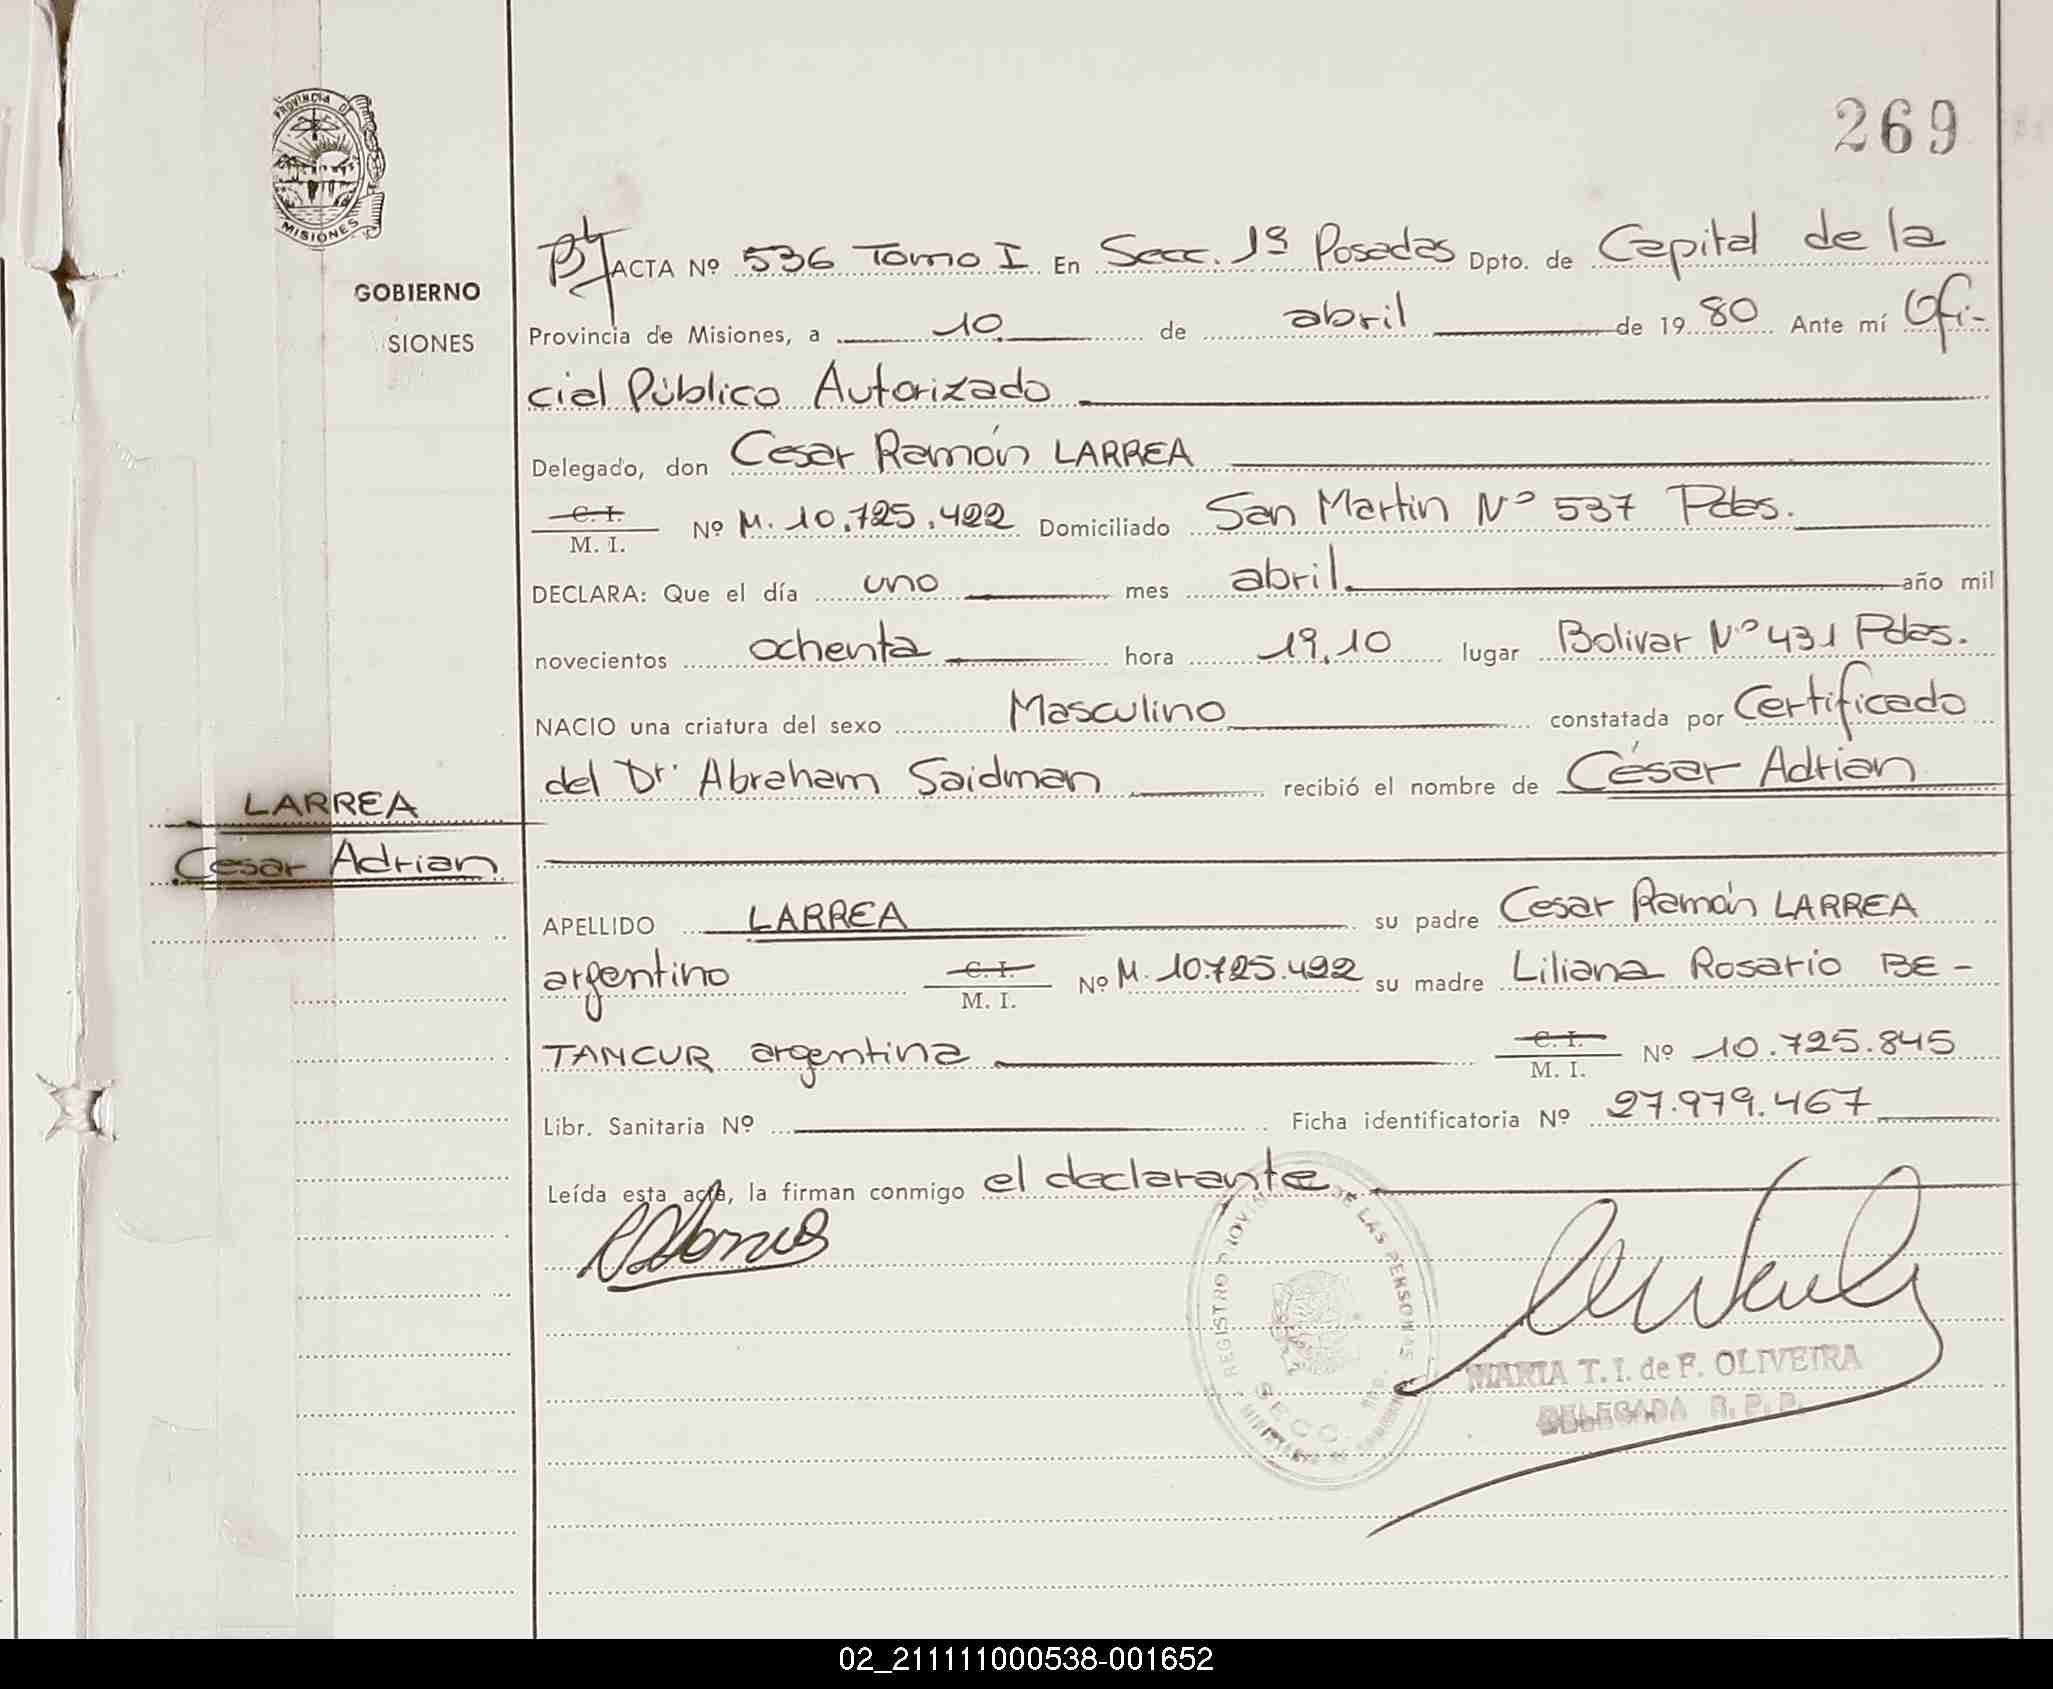 269
PROVINCIA DE
MISIONES
GOBIERNO
SIONES
ACTA Nº 536 Tomo I En Secc. 1ª Posadas Dpto. de Capital de la
Provincia de Misiones, a 10 de abril de 1980 Ante mí Ofi-
cial Público Autorizado
Delegado, don Cesar Ramón LARREA
C. I.
M. I. Nº M. 10.725.422 Domiciliado San Martin Nº 537 Pdas.
DECLARA: Que el día uno mes abril. año mil
novecientos ochenta hora 19,10 lugar Bolivar Nº 431 Pdas.
NACIO una criatura del sexo Masculino constatada por Certificado
del Dr. Abraham Saidman recibió el nombre de César Adrian
LARREA
Cesar Adrian
APELLIDO LARREA su padre Cesar Ramón LARREA
argentino C. I.
M. I. Nº M. 10.725.422 su madre Liliana Rosario BE-
TANCUR argentina C. I.
M. I. Nº 10.725.845
Libr. Sanitaria Nº Ficha identificatoria Nº 27.979.467
Leída esta acta, la firman conmigo el declarante
REGISTRO PROVINCIAL DE LAS PERSONAS
SECC.
MARIA T. I. de F. OLIVEIRA
DELEGADA R. P. P.
02_211111000538-001652